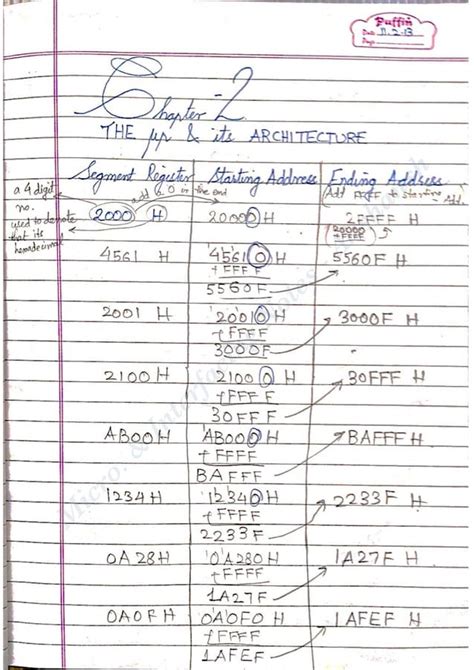 Puffin
Date 11.2.13
Page
Chapter-2
THE µp & its ARCHITECTURE
Segment Register Starting Address Ending Address
a 4 digit no. used to denote that its hexadecimal
add a 0 in the end
(Add FFFF to starting Add.
2000 H 20000 H 2FFFF H
20000
+FFFF
4561 H 45610 H 5560F H
+FFFF
5560F
2001 H 20010 H 3000F H
+FFFF
3000F
2100 H 21000 H 30FFF H
+FFFF
30FFF
AB00H AB000 H BAFFF H
+FFFF
BAFFF
1234 H 12340 H 2233F H
+FFFF
2233F
0A28H 0A280H 1A27F H
+FFFF
1A27F
0A0F H 0A0F0 H 1AFEF H
+FFFF
1AFEF